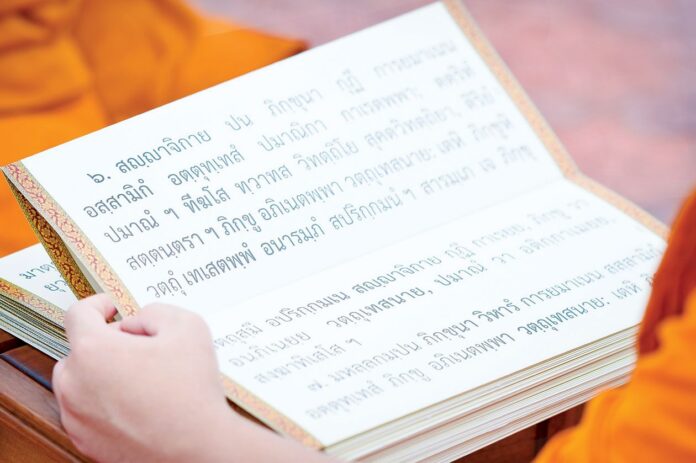 ๖. สญฺญาจิกาย ปน ภิกฺขุนา กุฏึ การยมาเนน
อสฺสามิกํ อตฺตุทฺเทสํ ปมาณิกา กาเรตพฺพา. ตตฺริทํ
ปมาณํ ฯ ทีฆโส ทฺวาทส วิทตฺถิโย สุคตวิทตฺถิยา, ติริยํ
สตฺตนฺตรา ฯ ภิกฺขู อภิเนตพฺพา วตฺถุเทสนาย. เตหิ ภิกฺขูหิ
วตฺถุํ เทเสตพฺพํ อนารมฺภํ สปริกฺกมนํ ฯ สารมฺเภ เจ ภิกฺขุ
วตฺถุสฺมึ อปริกฺกมเน สญฺญาจิกาย กุฏึ กาเรยฺย, ภิกฺขู วา
อนภิเนยฺย วตฺถุเทสนาย, ปมาณํ วา อติกฺกาเมยฺย,
สงฺฆาทิเสโส ฯ
๗. มหลฺลกมฺปน ภิกฺขุนา วิหารํ การยมาเนน สสฺสามิกํ
อตฺตุทฺเทสํ ภิกฺขู อภิเนตพฺพา วตฺถุเทสนาย. เตหิ